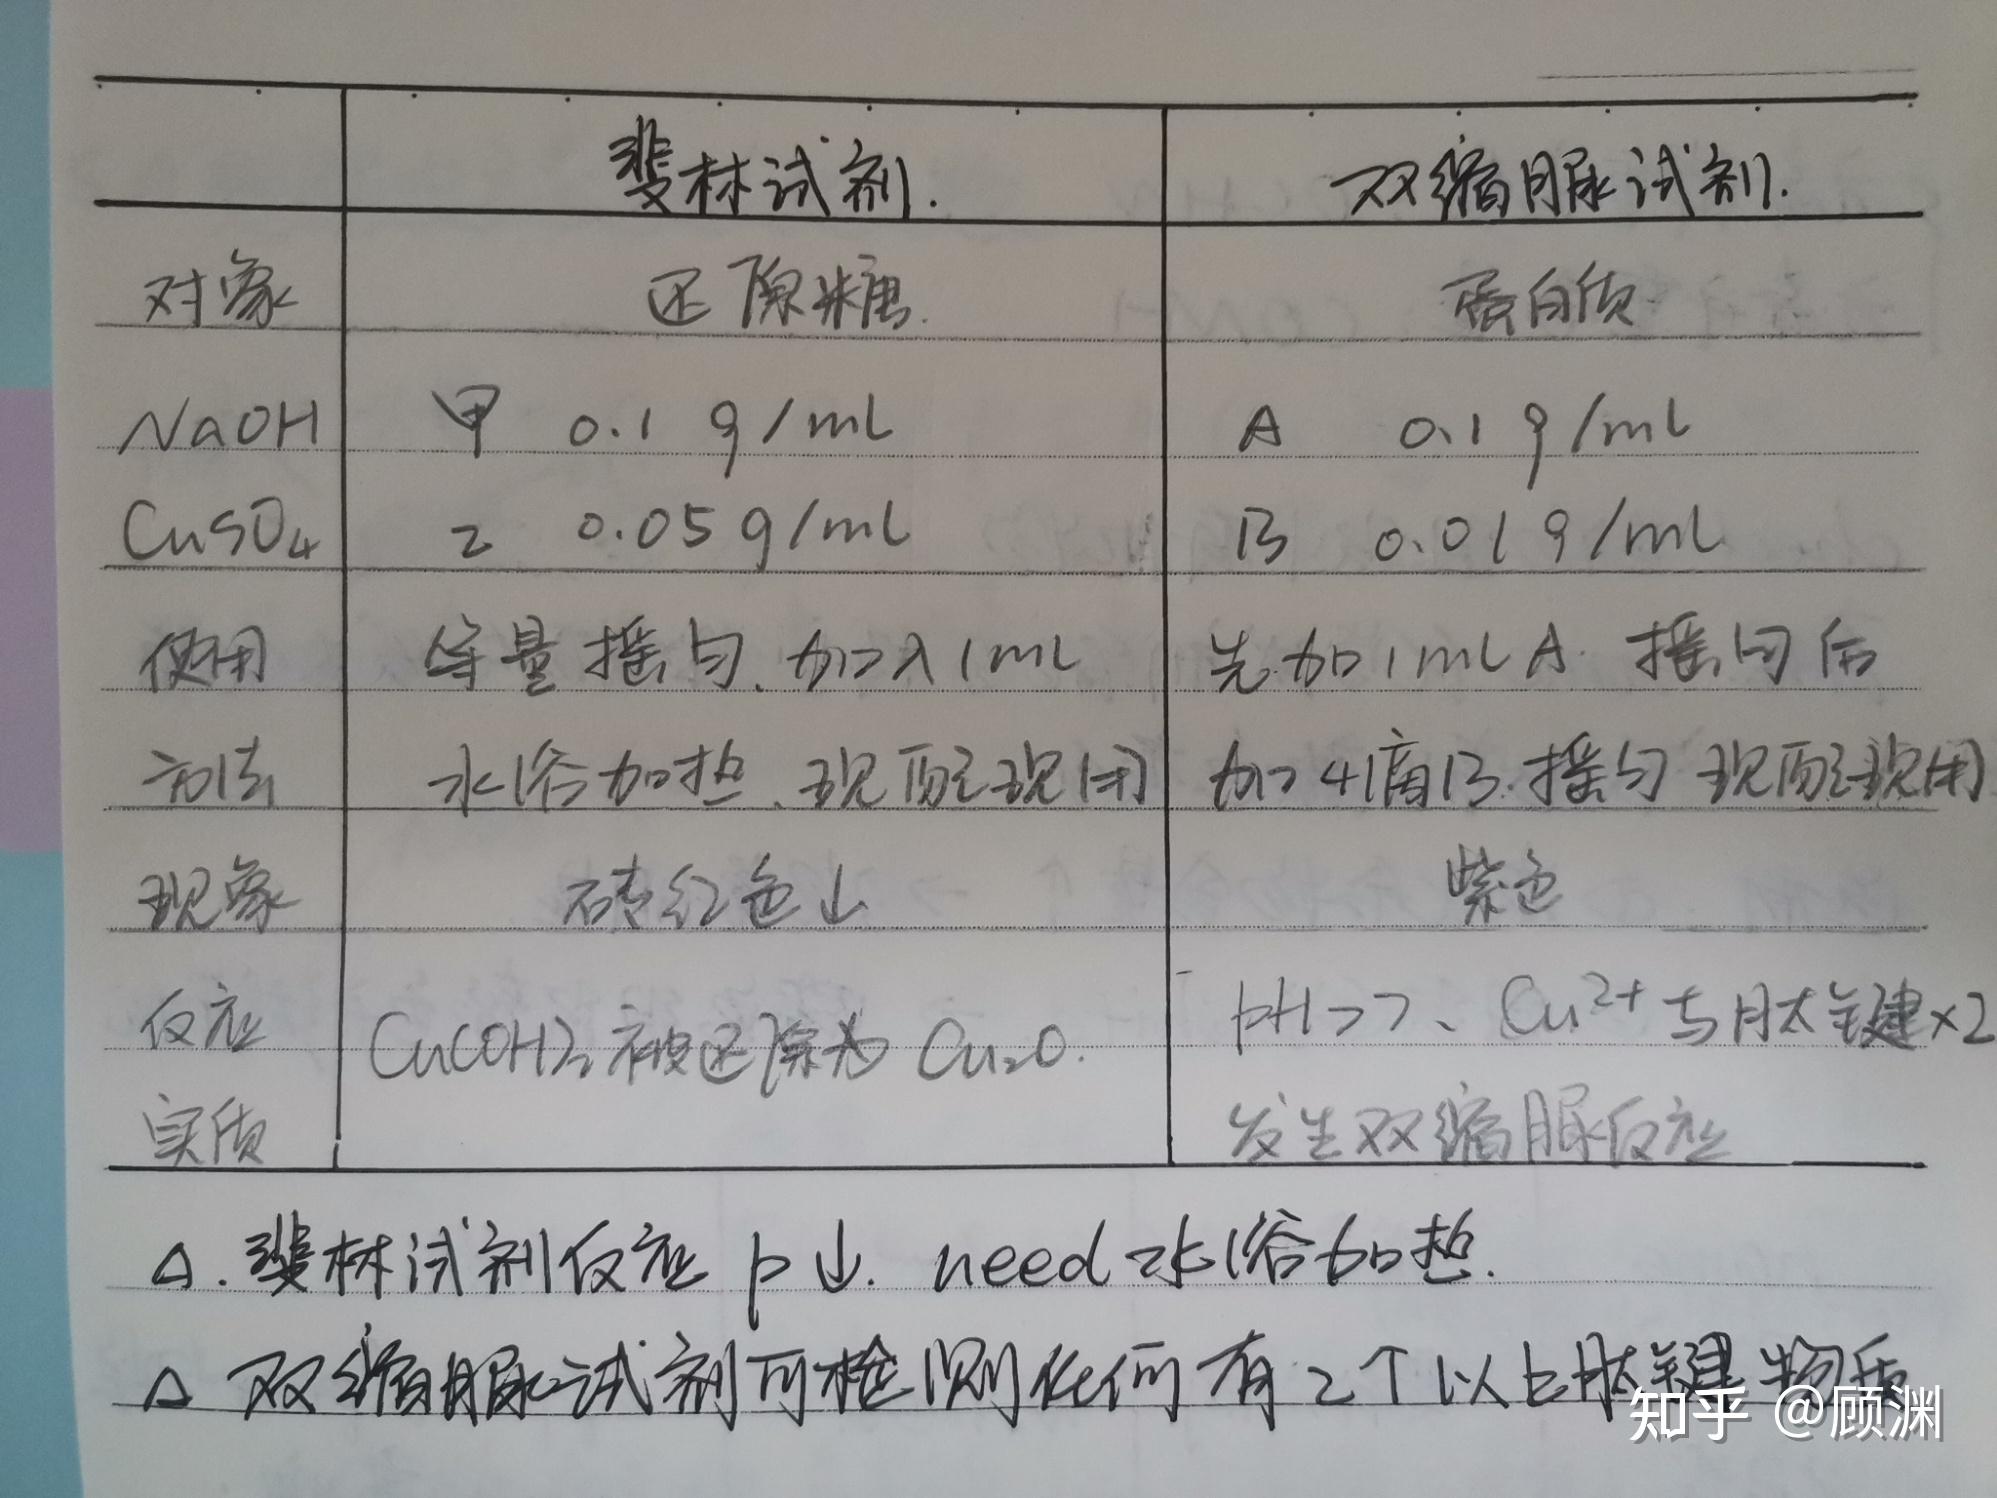 斐林试剂. 双缩脲试剂.
对象 还原糖. 蛋白质
NaOH 甲 0.1 g/mL A 0.1 g/mL
CuSO4 乙 0.05 g/mL B 0.01 g/mL
使用 等量摇匀、加入1mL 先加1mLA. 摇匀后
方法 水浴加热、现配现用 加入4滴B.摇匀 现配现用
现象 砖红色↓ 紫色
反应 Cu(OH)2被还原为 Cu2O. pH>7、Cu²⁺与肽键×2
实质 发生双缩脲反应
△.斐林试剂反应 p↓. need水浴加热.
△ 双缩脲试剂可检测任何有2个以上肽键物质
知乎 @顾渊